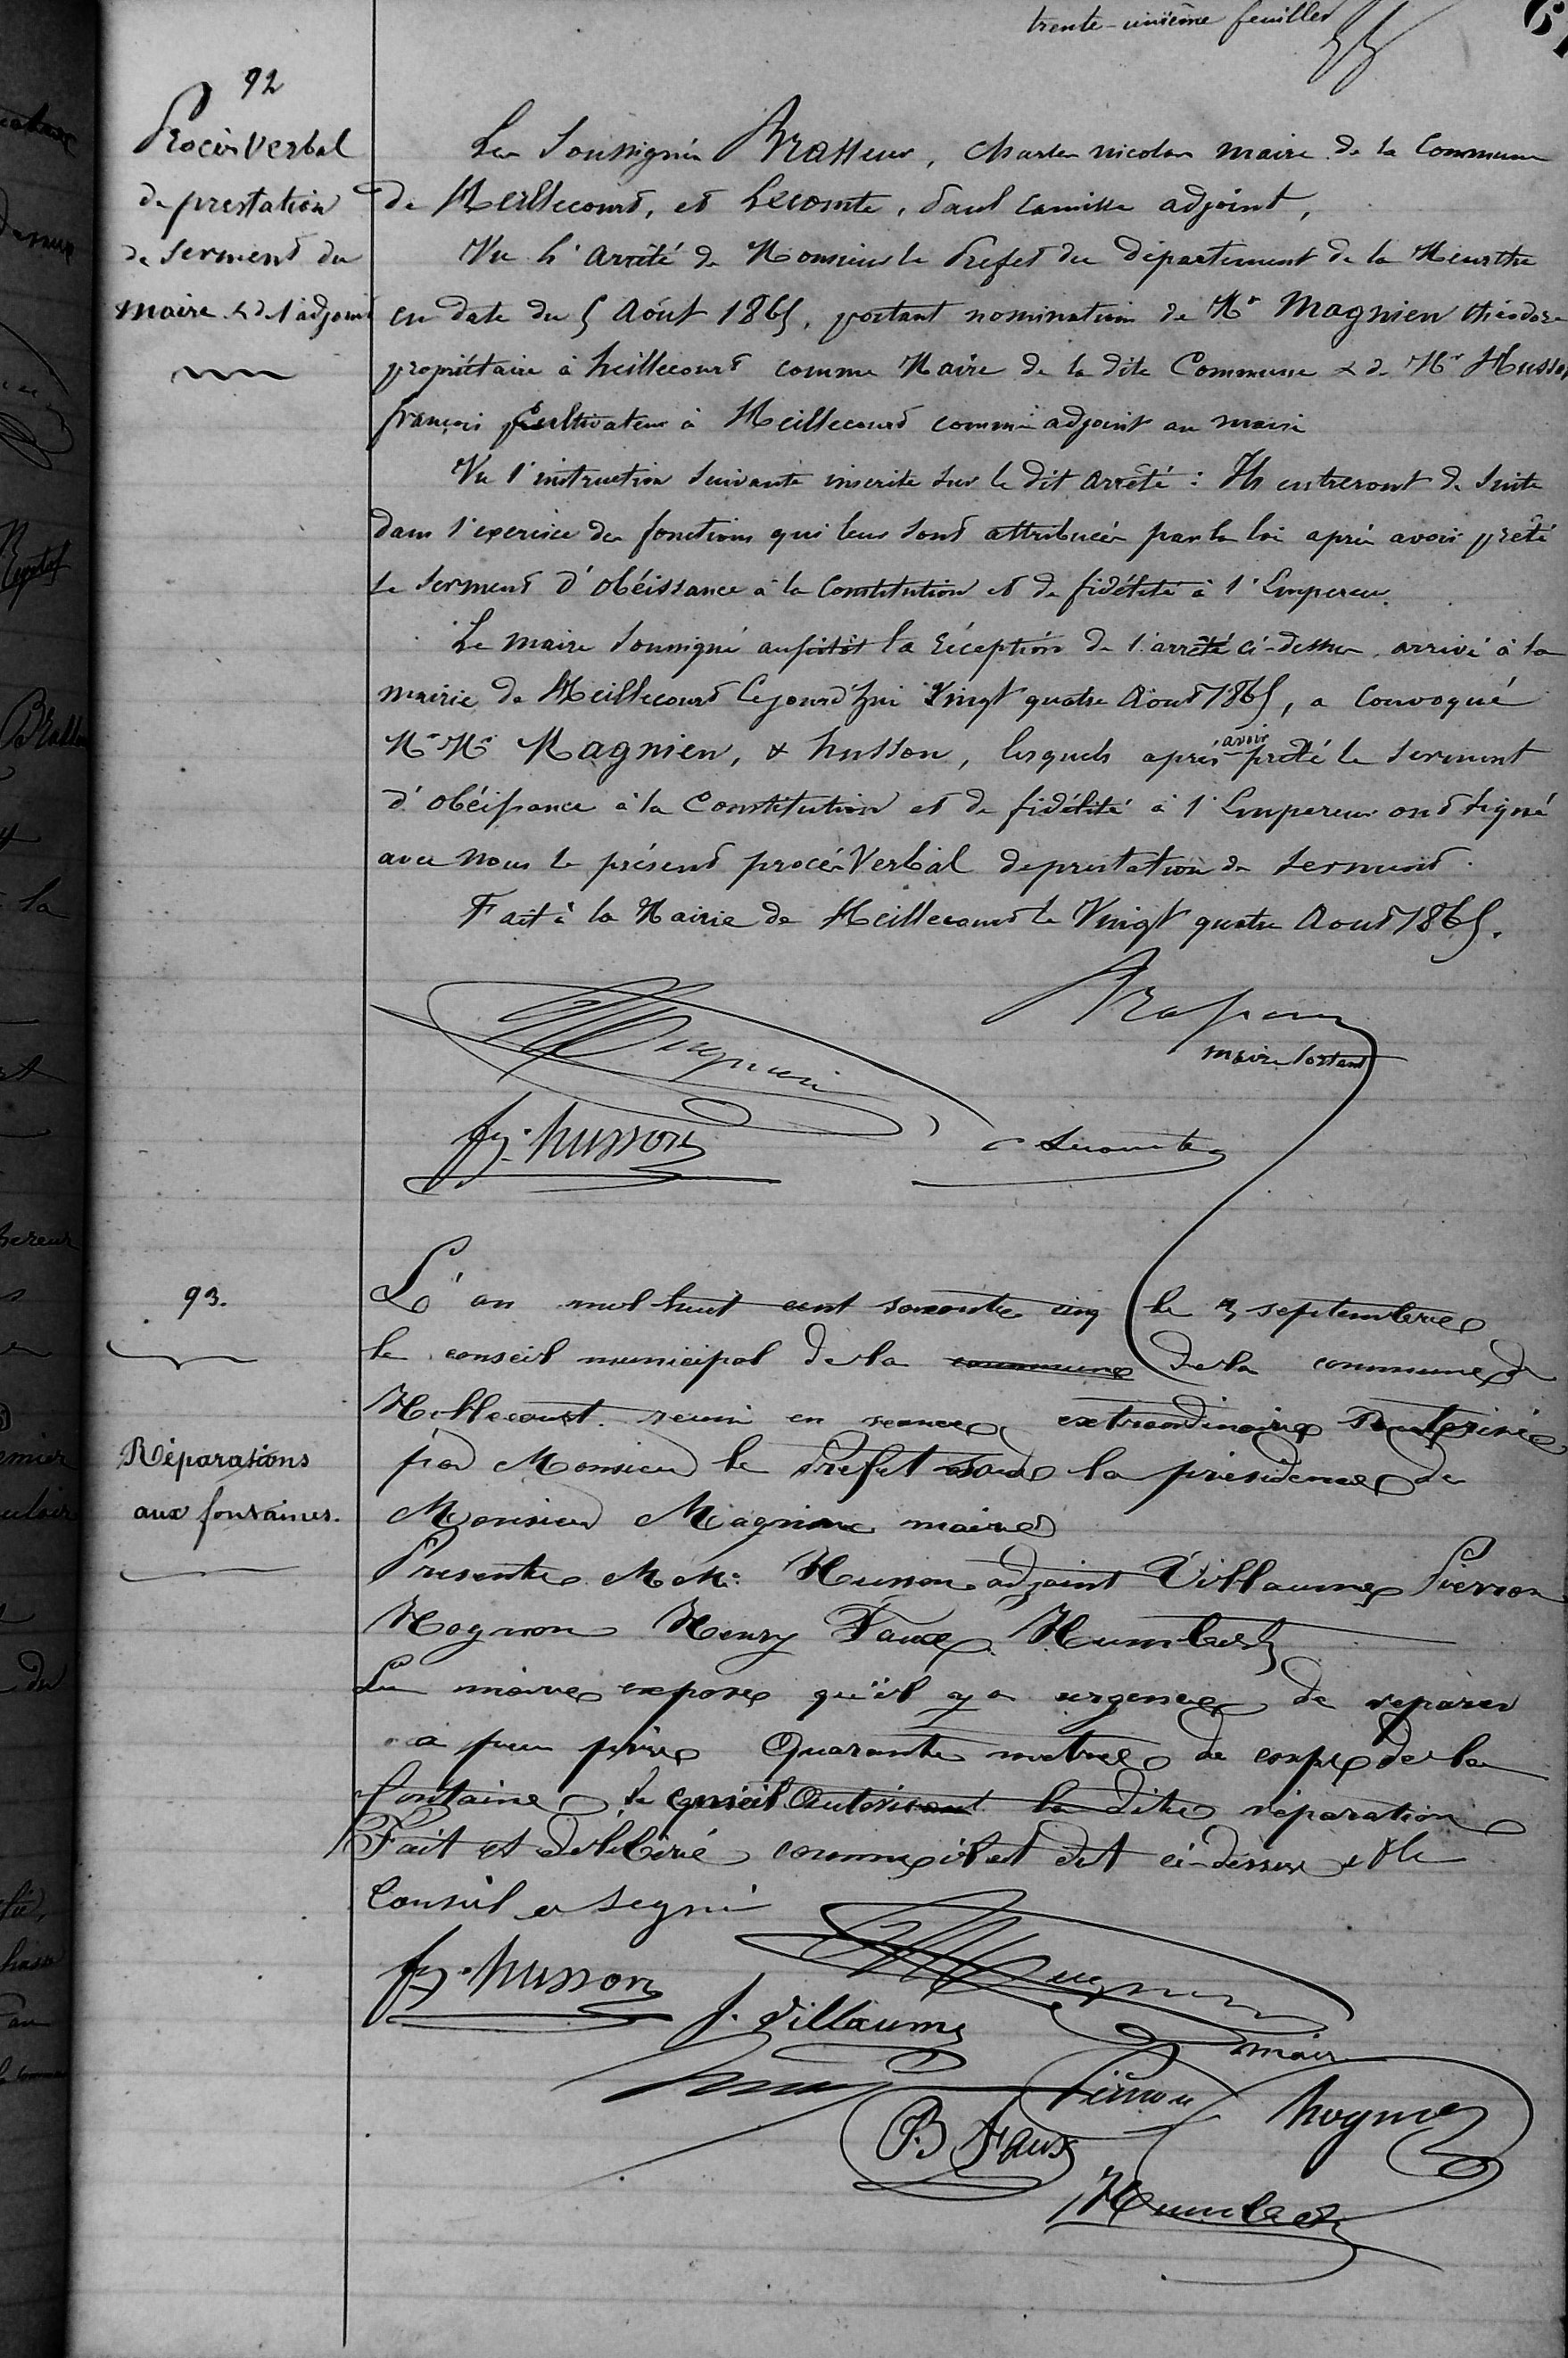 trente-unième feuillet
61
92
Procès Verbal
de prestation
de Serment du
maire & de l'adjoint
Les Soussignés Brasseur, Charles nicolas maire de la Commune
de Heillecourt, et Lecomte, Paul Camille adjoint,
Vu l'Arrêté de Monsieur le Prefet du Département de la Meurthe
en date du 5 Août 1865, portant nomination de Mr Magnien théodore
propriétaire à heillecourt comme Maire de la dite Commune & de Mr Husson
françois Cultivateur à Heillecourt comme adjoint au maire
Vu l'instruction Suivante inscrite sur le dit arrêté : Ils entreront de Suite
dans l'exercice des fonctions qui leur sont attribuées par la loi après avoir prêté
le Serment d'Obéissance à la Constitution et de fidélité à l'Empereur.
Le maire Soussigné aussitôt la réception de l'arrêté ci-dessus arrivé à la
mairie de Heillecourt Cejourd'hui Vingt quatre Aout 1865, a Convoqué
Mr Mr Magnien, & husson, lesquels après avoir prêté le Serment
d'Obéissance à la Constitution et de fidélité à l'Empereur ont Signé
avec Nous le présent procès Verbal de prestation de Serment.
Fait à la Mairie de Heillecourt le Vingt quatre Aout 1865.
Magnien
Brasseur
maire sortant
fs. husson
Lecomte
93.
L'an mil huit cent soixante cinq le 3 septembre
le conseil municipal de la commune de la commune de
Heillecourt reuni en seance extraordinaire autorisée
par Monsieur le Prefet sous la présidence de
Monsieur Magnien maire
Réparations
aux fontaines.
Presents MM. Husson adjoint Villaume Pierson
Hognon Henry Faux Humbert
Le maire expose qu'il y a urgence de reparer
a peu près Quarante metres de corps de la
fontaine le conseil Autorisent la dite réparation
Fait et délibéré comme il est dit ci-dessus et le
Conseil a signé
fs. husson
Magnien
maire
J. Villaume
Pierson
hognon
B Faux
Humbert